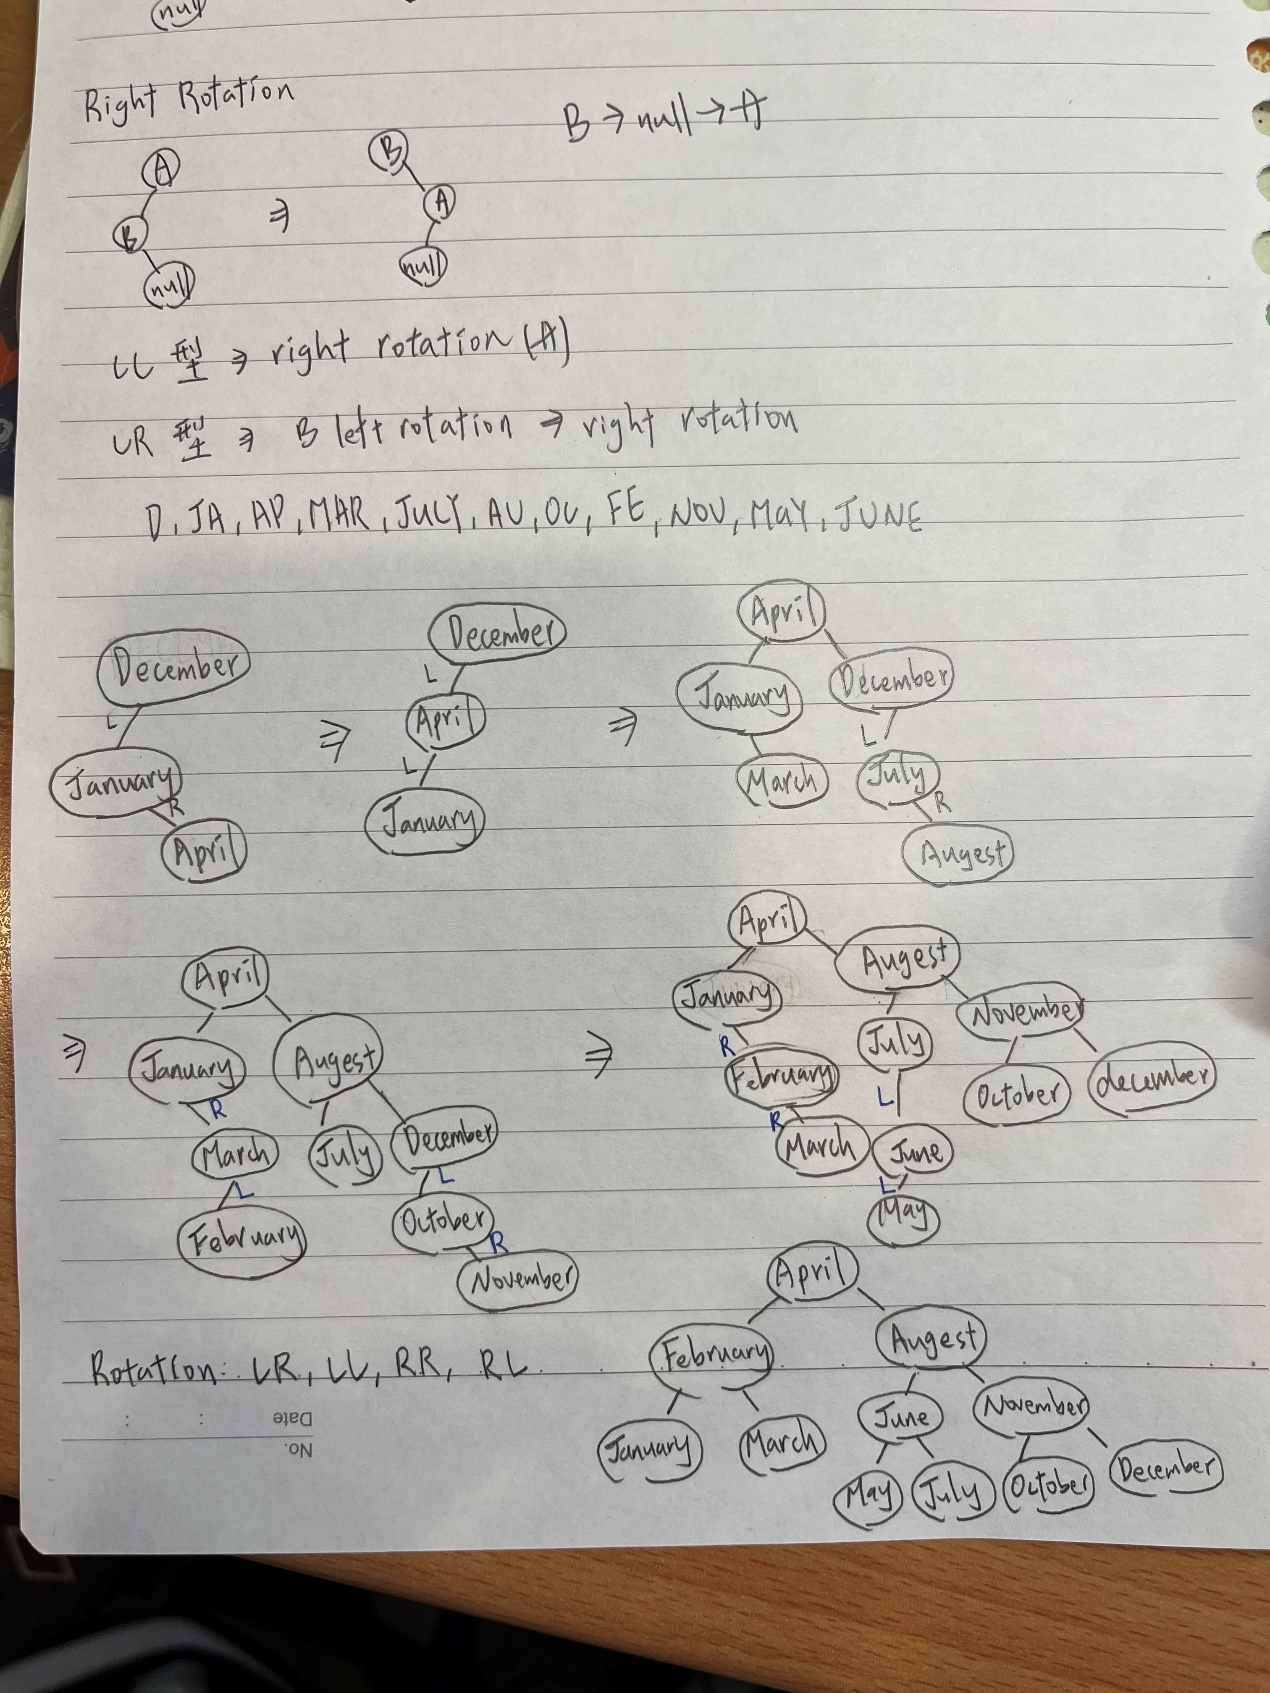 null
Right Rotation
B → null → A
A
B
null
⇒
B
A
null
LL 型 ⇒ right rotation (A)
LR 型 ⇒ B left rotation ⇒ right rotation
D, JA, AP, MAR, JULY, AU, OC, FE, NOV, MAY, JUNE
December
L
January
R
April
⇒
December
L
April
L
January
⇒
April
January
December
March
L
July
R
Augest
⇒
April
January
Augest
R
March
July
December
L
February
L
October
R
November
⇒
April
Augest
January
November
R
February
July
October
december
R
March
L
June
L
May
April
February
Augest
January
March
June
November
May
July
October
December
Rotation: LR, LL, RR, RL.
Date : :
No.